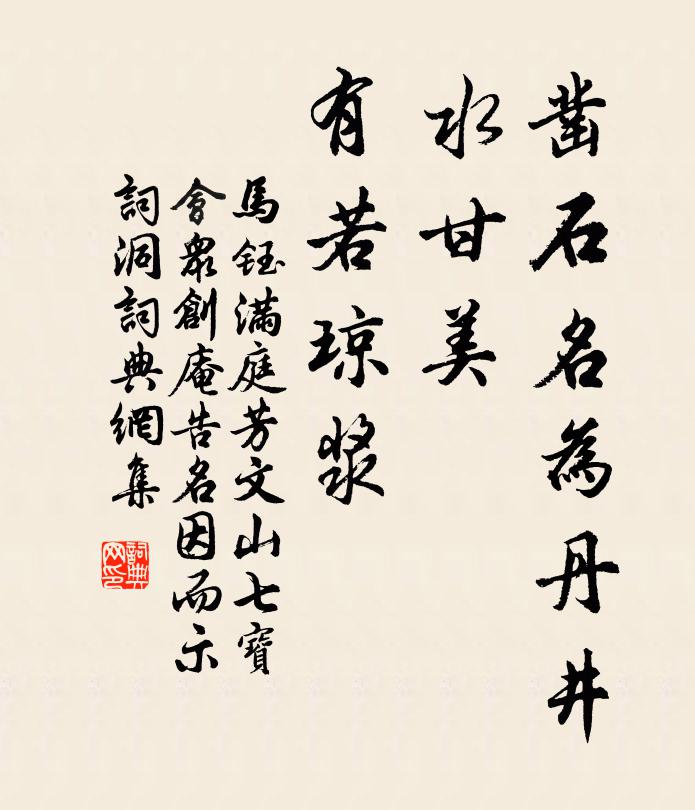 凿石名為丹井
水甘美
有若琼漿
馬鈺滿庭芳文山七寶
會眾創庵告名因而示
詞洞詞典網集
詞典网印